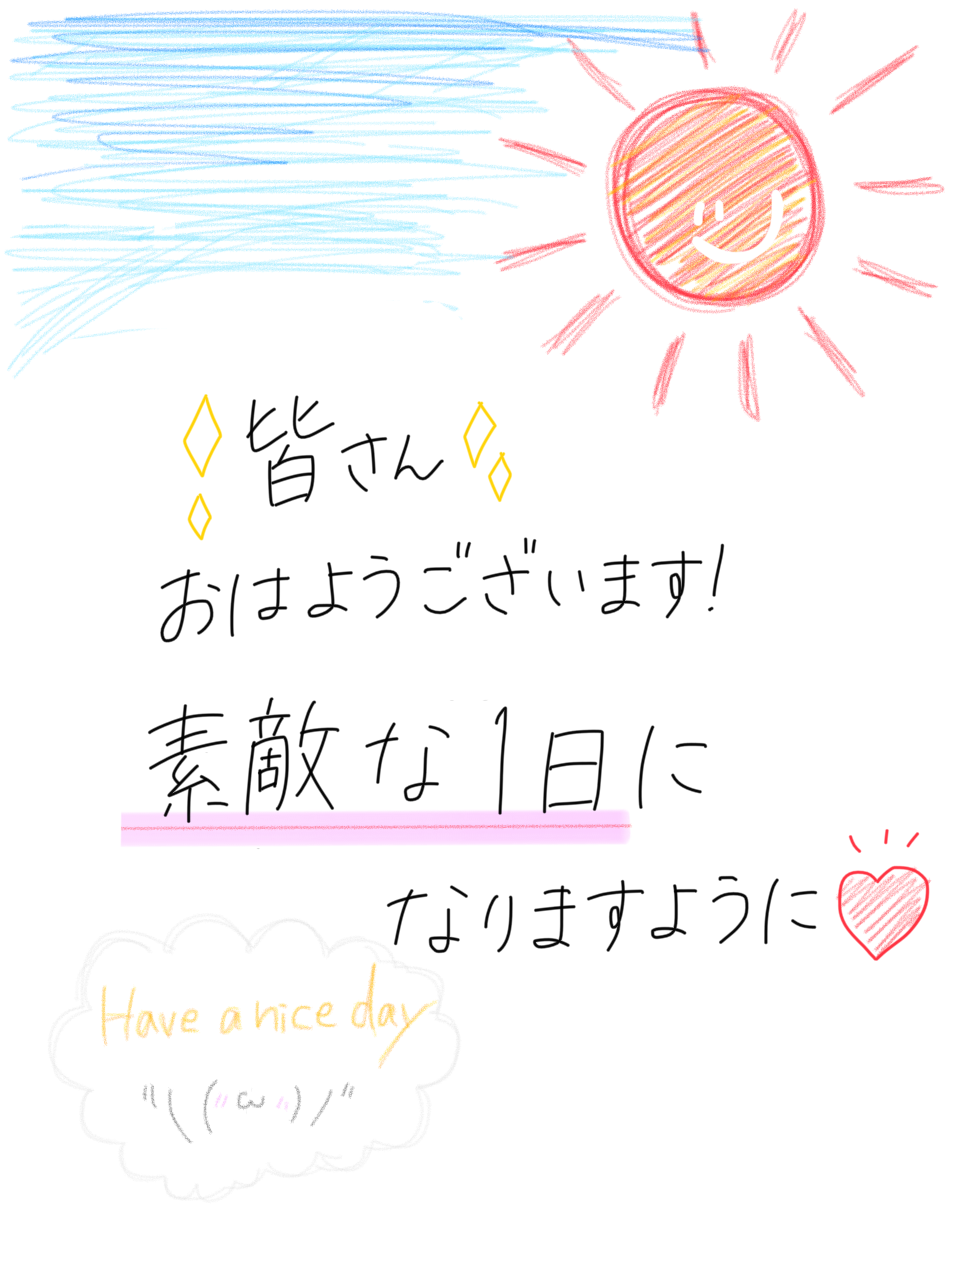 皆さん
おはようございます!
素敵な1日に
なりますように
Have a nice day
"\("ω")/"